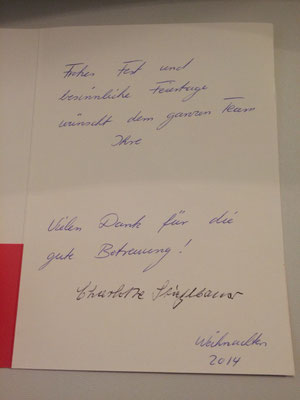 Frohes Fest und
besinnliche Feiertage
wünscht dem ganzen Team
Ihre
Vielen Dank für die
gute Betreuung!
Charlotte
Weihnachten
2014